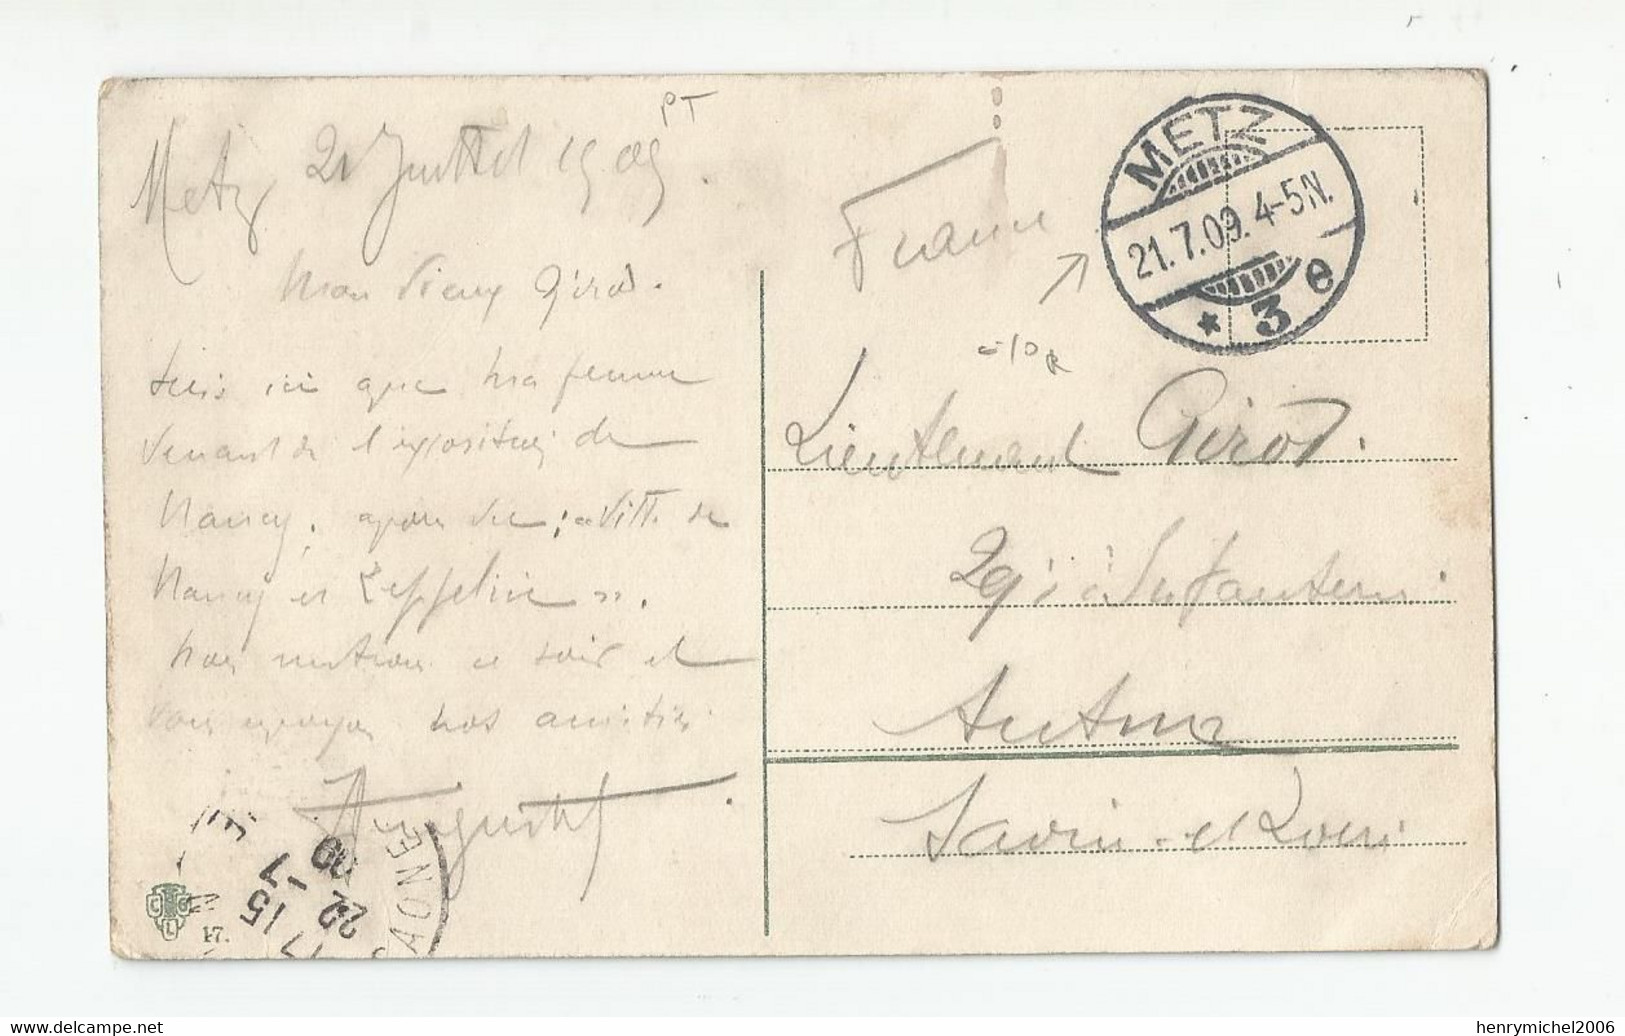 Metz 21 Juillet 1909.
PT
Mon Vieux Girod.
suis ici avec ma femme
venant de l'exposition de
Nancy, après vu "Ville de
Nancy et Zeppelin".
Nous rentrons ce soir et
vous envoyons nos amitiés.
France
METZ
21.7.09.4-5N.
* 3 e
Lieutenant Girod.
29e d'Infanterie
Autun
Saône-et-Loire
AONE
15
22 -7
09
C G
L
17.
henrymichel2006